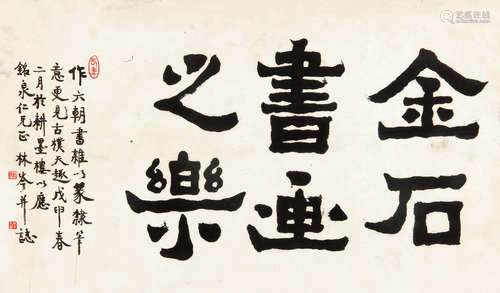 金石
書画
之樂
作六朝書雄以篆隸筆
意更見古樸天趣戊申春
二月於耕墨樓以應
銘泉仁兄正 林岑并誌